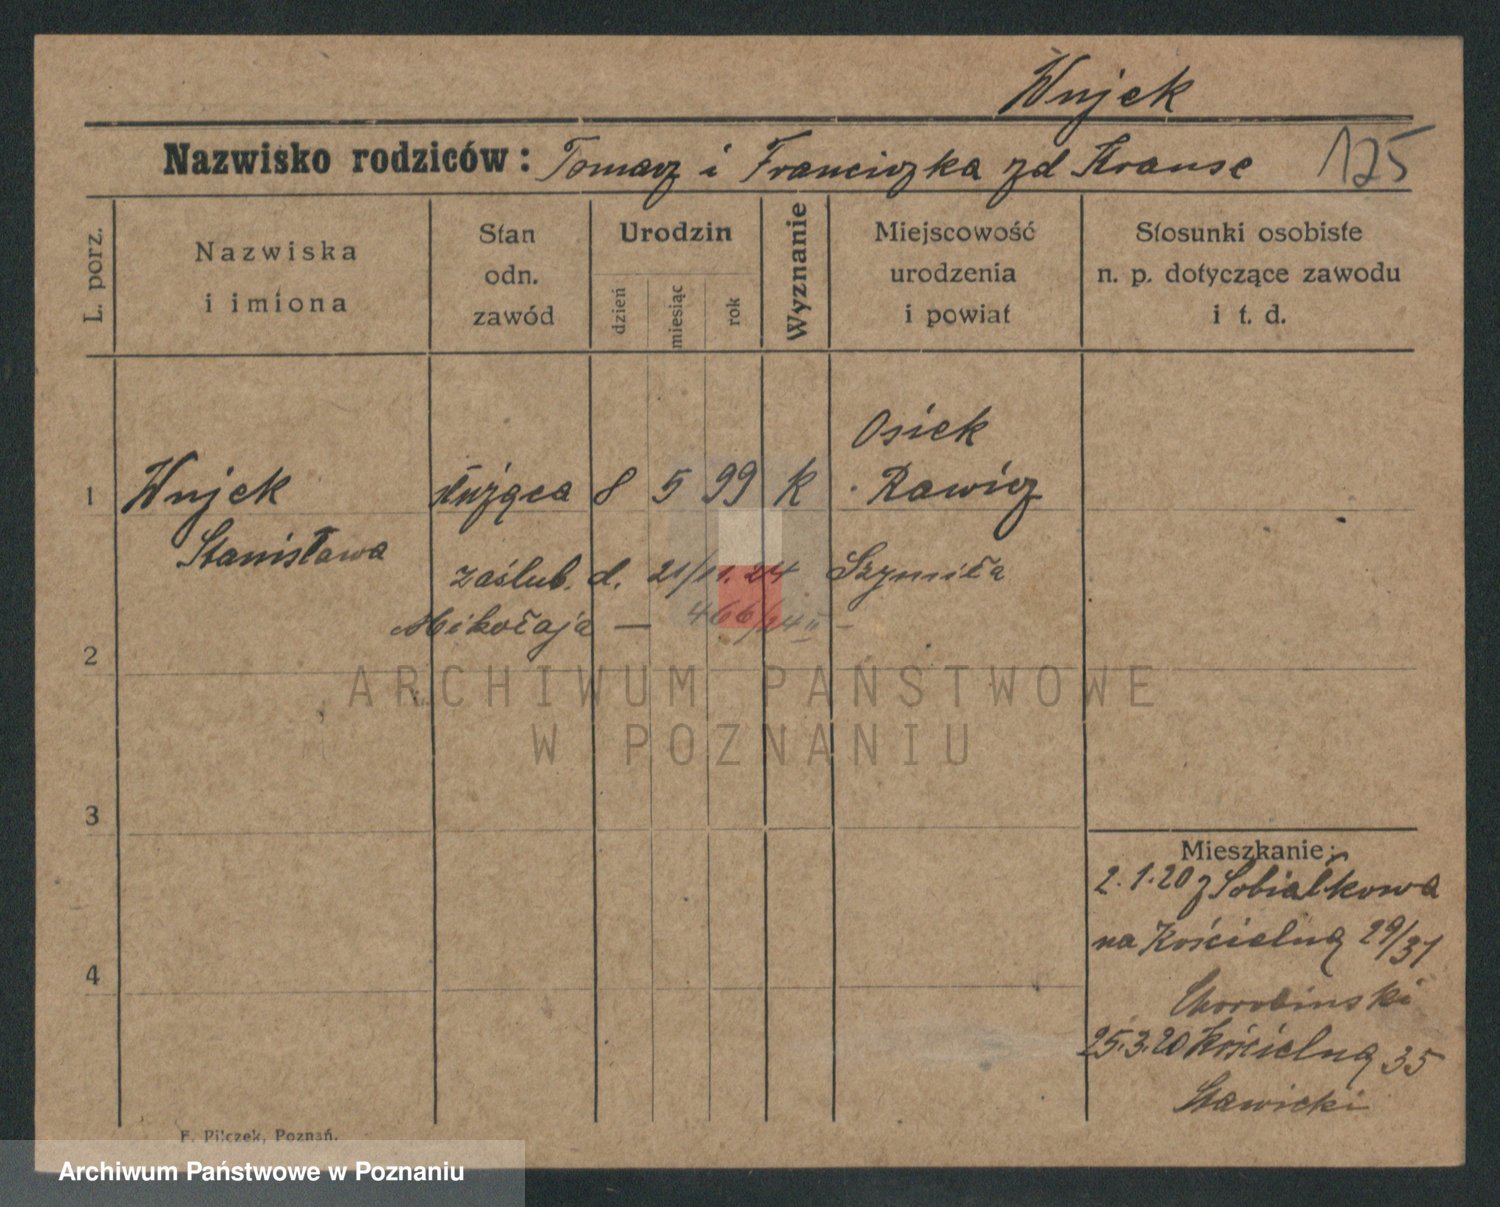 Wujek
Nazwisko rodziców: Tomasz i Franciszka zd Krause 125
L. porz.
Nazwiska
i imiona
Stan
odn.
zawód
Urodzin
dzień
miesiąc
rok
Wyznanie
Miejscowość
urodzenia
i powiat
Stosunki osobiste
n. p. dotyczące zawodu
i t. d.
Osiek
1 Wujek służąca 8 5 99 k Rawicz
Stanisława
zaślub. d. 21/11. 24 Szymiła
Mikołaja — 466/24 II -
2
ARCHIWUM PAŃSTWOWE
W POZNANIU
3
Mieszkanie:
2.1.20 z Sobiałkowa
na Kościelną 29/31
4
25.3.20 Kościelną 35
Stawicki
F. Pilczek, Poznań.
Archiwum Państwowe w Poznaniu